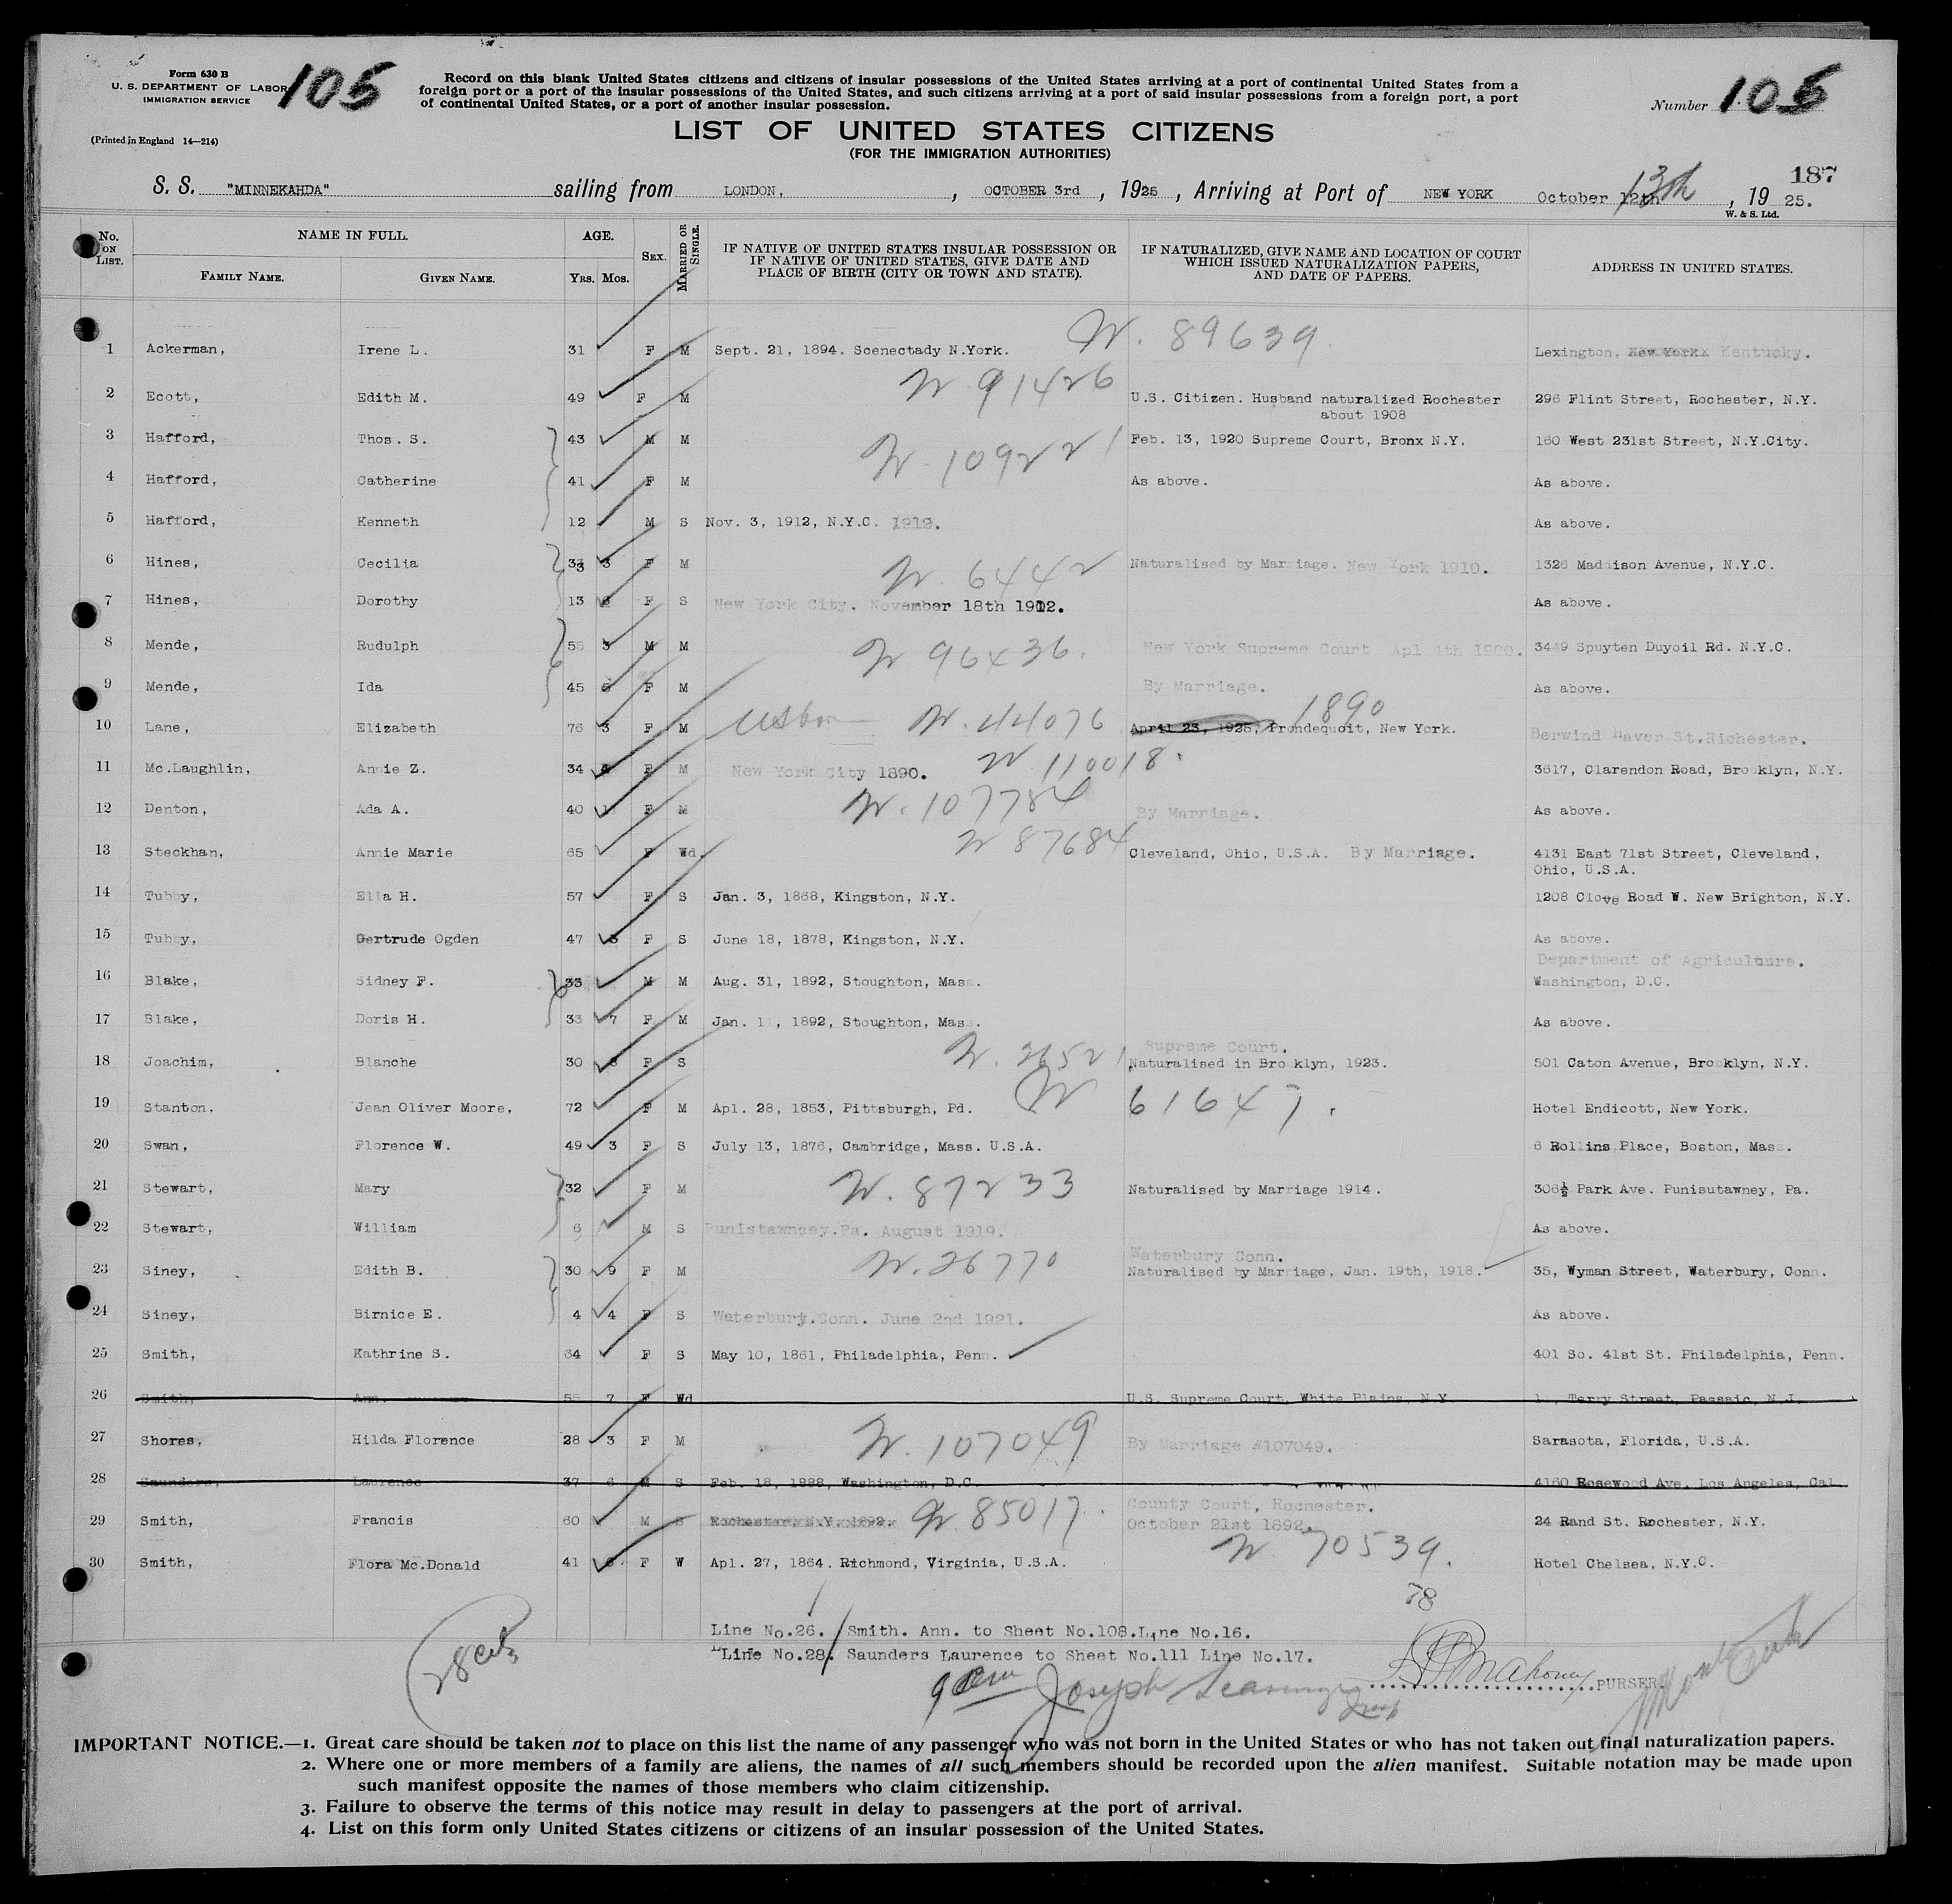 Form 630 B
U. S. DEPARTMENT OF LABOR
IMMIGRATION SERVICE
105
(Printed in England 14—214)
Record on this blank United States citizens and citizens of insular possessions of the United States arriving at a port of continental United States from a
foreign port or a port of the insular possessions of the United States, and such citizens arriving at a port of said insular possessions from a foreign port, a port
of continental United States, or a port of another insular possession.
Number 105
LIST OF UNITED STATES CITIZENS
(FOR THE IMMIGRATION AUTHORITIES)
187
S. S. "MINNEKAHDA" sailing from LONDON, , OCTOBER 3rd , 1925 , Arriving at Port of NEW YORK October 12th 13th , 19 25.
W. & S. Ltd.
No. ON LIST. NAME IN FULL. FAMILY NAME. GIVEN NAME. AGE. Yrs. Mos. SEX. MARRIED OR SINGLE. IF NATIVE OF UNITED STATES INSULAR POSSESSION OR IF NATIVE OF UNITED STATES, GIVE DATE AND PLACE OF BIRTH (CITY OR TOWN AND STATE). IF NATURALIZED, GIVE NAME AND LOCATION OF COURT WHICH ISSUED NATURALIZATION PAPERS, AND DATE OF PAPERS. ADDRESS IN UNITED STATES.
1 Ackerman, Irene L. 31 F M Sept. 21, 1894. Scenectady N.York. N. 89639 Lexington, New York Kentucky.
2 Ecott, Edith M. 49 F M N 91426 U.S. Citizen. Husband naturalized Rochester 296 Flint Street, Rochester, N.Y.
about 1908
3 Hafford, Thos. S. 43 M M N. 109221 Feb. 13, 1920 Supreme Court, Bronx N.Y. 160 West 231st Street, N.Y.City.
4 Hafford, Catherine 41 F M As above. As above.
5 Hafford, Kenneth 12 M S Nov. 3, 1912, N.Y.C. 1912. As above.
6 Hines, Cecilia 33 3 F M N. 6442 Naturalised by Marriage. New York 1910. 1326 Maddison Avenue, N.Y.C.
7 Hines, Dorothy 13 F S New York City. November 18th 1912. As above.
8 Mende, Rudulph 55 3 M M N 96436. New York Supreme Court Apl 4th 1900. 3449 Spuyten Duyoil Rd. N.Y.C.
9 Mende, Ida 45 5 F M By Marriage. As above.
10 Lane, Elizabeth 76 3 F M N. 44076 April 23, 1925, Irondequoit, New York. 1890 Berwind Haver St.Richester.
11 Mc.Laughlin, Annie Z. 34 F M New York City 1890. N 110018. 3617, Clarendon Road, Brooklyn, N.Y.
12 Denton, Ada A. 40 1 F M N. 107784 By Marriage. As above.
13 Steckhan, Annie Marie 65 F Wd. N 87684 Cleveland, Ohio, U.S.A. By Marriage. 4131 East 71st Street, Cleveland,
Ohio, U.S.A.
14 Tubby, Ella H. 57 F S Jan. 3, 1868, Kingston, N.Y. 1208 Clove Road W. New Brighton, N.Y.
15 Tubby, Gertrude Ogden 47 F S June 18, 1878, Kingston, N.Y. As above.
Department of Agriculture.
16 Blake, Sidney F. 33 M M Aug. 31, 1892, Stoughton, Mass. Washington, D.C.
17 Blake, Doris H. 33 7 F M Jan. 11, 1892, Stoughton, Mass. As above.
Supreme Court.
18 Joachim, Blanche 30 F S N. 26521 Naturalised in Brooklyn, 1923. 501 Caton Avenue, Brooklyn, N.Y.
19 Stanton, Jean Oliver Moore, 72 F M Apl. 28, 1853, Pittsburgh, Pd. N 61647. Hotel Endicott, New York.
20 Swan, Florence W. 49 3 F S July 13, 1876, Cambridge, Mass. U.S.A. 6 Rollins Place, Boston, Mass.
21 Stewart, Mary 32 F M N. 87233 Naturalised by Marriage 1914. 306½ Park Ave. Punisutawney, Pa.
22 Stewart, William 6 M S Punistawney.Pa. August 1919. As above.
Waterbury Conn.
23 Siney, Edith B. 30 9 F M N. 26770 Naturalised by Marriage, Jan. 19th, 1918. 35, Wyman Street, Waterbury, Conn.
24 Siney, Birnice E. 4 4 F S Waterbury.Conn. June 2nd 1921. As above.
25 Smith, Kathrine S. 64 F S May 10, 1861, Philadelphia, Penn. 401 So. 41st St. Philadelphia, Penn.
26 Smith, Ann. 55 7 F Wd U.S. Supreme Court, White Plains, N.Y. Terry Street, Passaic, N.J.
27 Shores, Hilda Florence 28 3 F M N. 107049 By Marriage #107049. Sarasota, Florida, U.S.A.
28 Saunders, Laurence 37 6 M S Feb. 18, 1888, Washington, D.C. 4160 Rosewood Ave. Los Angeles, Cal
County Court, Rochester.
29 Smith, Francis 60 M S Rochester, N.Y. 1892. N. 85017. October 21st 1892. 24 Rand St. Rochester, N.Y.
30 Smith, Flora Mc.Donald 41 F W Apl. 27, 1864. Richmond, Virginia, U.S.A. N 70539. Hotel Chelsea, N.Y.C.
28
Line No.26. Smith. Ann. to Sheet No.108.Line No.16.
Line No.28. Saunders Laurence to Sheet No.111 Line No.17.
28 cits
Joseph
Mahoney PURSER
IMPORTANT NOTICE.—1. Great care should be taken not to place on this list the name of any passenger who was not born in the United States or who has not taken out final naturalization papers.
2. Where one or more members of a family are aliens, the names of all such members should be recorded upon the alien manifest. Suitable notation may be made upon
such manifest opposite the names of those members who claim citizenship.
3. Failure to observe the terms of this notice may result in delay to passengers at the port of arrival.
4. List on this form only United States citizens or citizens of an insular possession of the United States.